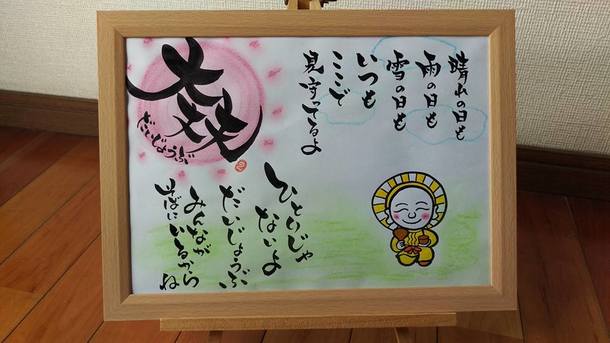 晴れの日も
雨の日も
雪の日も
いつも
ここで
見守ってるよ
大丈夫
だいじょうぶ
ひとりじゃ
ないよ
だいじょうぶ
みんなが
そばにいるからね